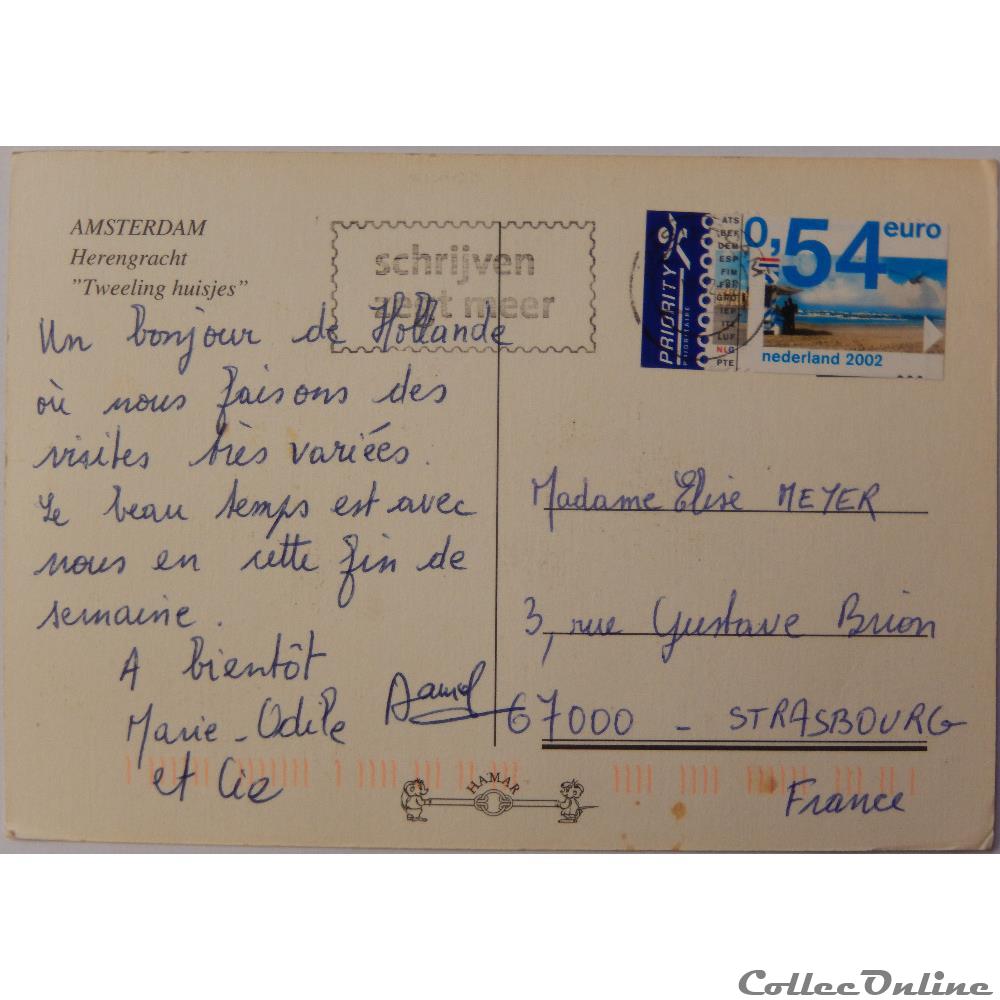 AMSTERDAM
Herengracht
"Tweeling huisjes"
schrijven
zegt meer
Un bonjour de Hollande
où nous faisons des
visites très variées.
Le beau temps est avec
nous en cette fin de
semaine.
A bientôt
Marie-Odile
et Cie
Daniel
PRIORITY
PRIORITAIRE
ATS
BEF
DEM
ESP
FIM
FRF
GRD
IEP
ITL
LUF
NLG
PTE
0,54 euro
nederland 2002
Madame Elise MEYER
3, rue Gustave Brion
67000 - STRASBOURG
France
HAMAR
CollecOnline